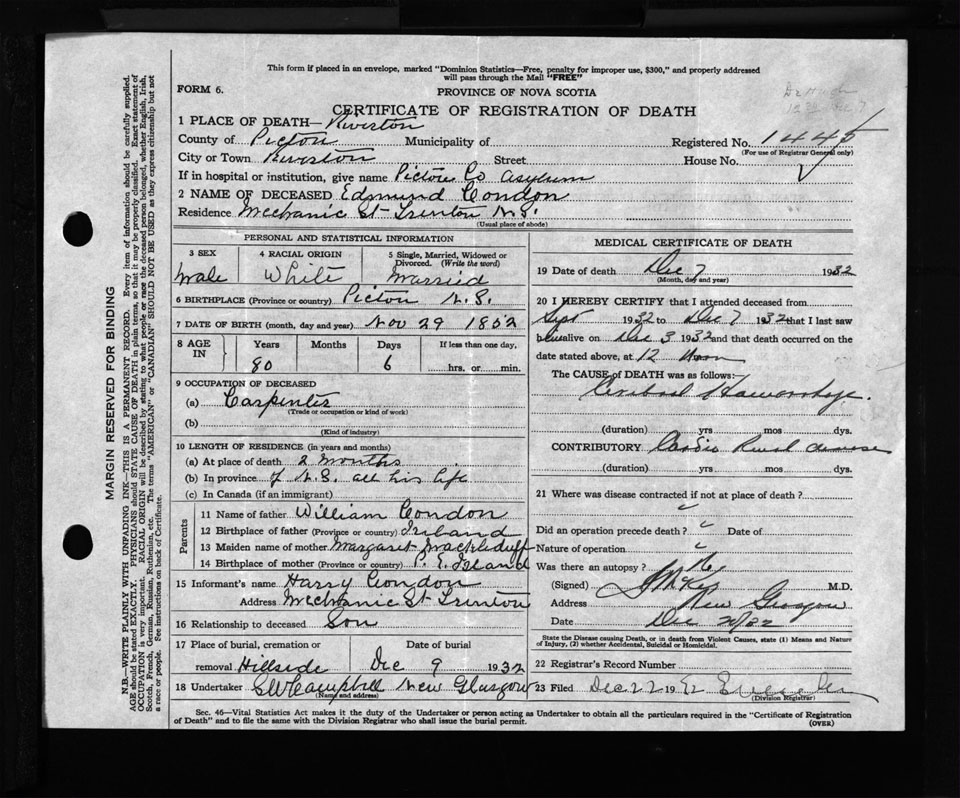 This form if placed in an envelope, marked "Dominion Statistics—Free, penalty for improper use, $300," and properly addressed
will pass through the Mail "FREE"
FORM 6.
PROVINCE OF NOVA SCOTIA
CERTIFICATE OF REGISTRATION OF DEATH
1 PLACE OF DEATH— Riverton
County of Pictou Municipality of Registered No. 1445
(For use of Registrar General only)
City or Town Riverton Street House No.
If in hospital or institution, give name Pictou Co Asylum
2 NAME OF DECEASED Edmund Condon
Residence Mechanic St Trenton N.S.
(Usual place of abode)
PERSONAL AND STATISTICAL INFORMATION
3 SEX 4 RACIAL ORIGIN 5 Single, Married, Widowed or
Divorced. (Write the word)
Male White Married
6 BIRTHPLACE (Province or country) Pictou N.S.
7 DATE OF BIRTH (month, day and year) Nov 29 1852
8 AGE IN Years Months Days If less than one day,
80 6 hrs. or min.
9 OCCUPATION OF DECEASED
(a) Carpenter
(Trade or occupation or kind of work)
(b)
(Kind of industry)
10 LENGTH OF RESIDENCE (in years and months)
(a) At place of death 2 Months
(b) In province of N.S. all his life
(c) In Canada (if an immigrant)
Parents
11 Name of father William Condon
12 Birthplace of father (Province or country) Ireland
13 Maiden name of mother Margaret
14 Birthplace of mother (Province or country) P. E. Island
15 Informant's name Harry Condon
Address Mechanic St Trenton
16 Relationship to deceased Son
17 Place of burial, cremation or Date of burial
removal Hillside Dec 9 1932
18 Undertaker SW Campbell New Glasgow
(Name and address)
MEDICAL CERTIFICATE OF DEATH
19 Date of death Dec 7 1932
(Month, day and year)
20 I HEREBY CERTIFY that I attended deceased from
Sept 1932 to Dec 7 1932 that I last saw
him alive on Dec 3 1932 and that death occurred on the
date stated above, at 12 Noon
The CAUSE of DEATH was as follows:
Cerebral Haemorrhage.
(duration) yrs mos dys.
CONTRIBUTORY Cardio Renal disease
(duration) yrs mos dys.
21 Where was disease contracted if not at place of death?
Did an operation precede death? Date of
Nature of operation
Was there an autopsy? No
(Signed) M.D.
Address New Glasgow
Date Dec
State the Disease causing Death, or in death from Violent Causes, state (1) Means and Nature
of Injury, (2) whether Accidental, Suicidal or Homicidal.
22 Registrar's Record Number
23 Filed Dec 22 19
(Division Registrar)
Sec. 46—Vital Statistics Act makes it the duty of the Undertaker or person acting as Undertaker to obtain all the particulars required in the "Certificate of Registration
of Death" and to file the same with the Division Registrar who shall issue the burial permit.
(OVER)
MARGIN RESERVED FOR BINDING
N.B.—WRITE PLAINLY WITH UNFADING INK—THIS IS A PERMANENT RECORD. Every item of information should be carefully supplied.
AGE should be stated EXACTLY. PHYSICIANS should STATE CAUSE OF DEATH in plain terms, so that it may be properly classified. Exact statement of
OCCUPATION is very important. RACIAL ORIGIN will be described by stating to what people or race the deceased person belonged, whether English, Irish,
Scotch, French, German, Russian, Ruthenian, etc. The terms "AMERICAN" or "CANADIAN" SHOULD NOT BE USED as they express citizenship but not
a race or people. See instructions on back of Certificate.